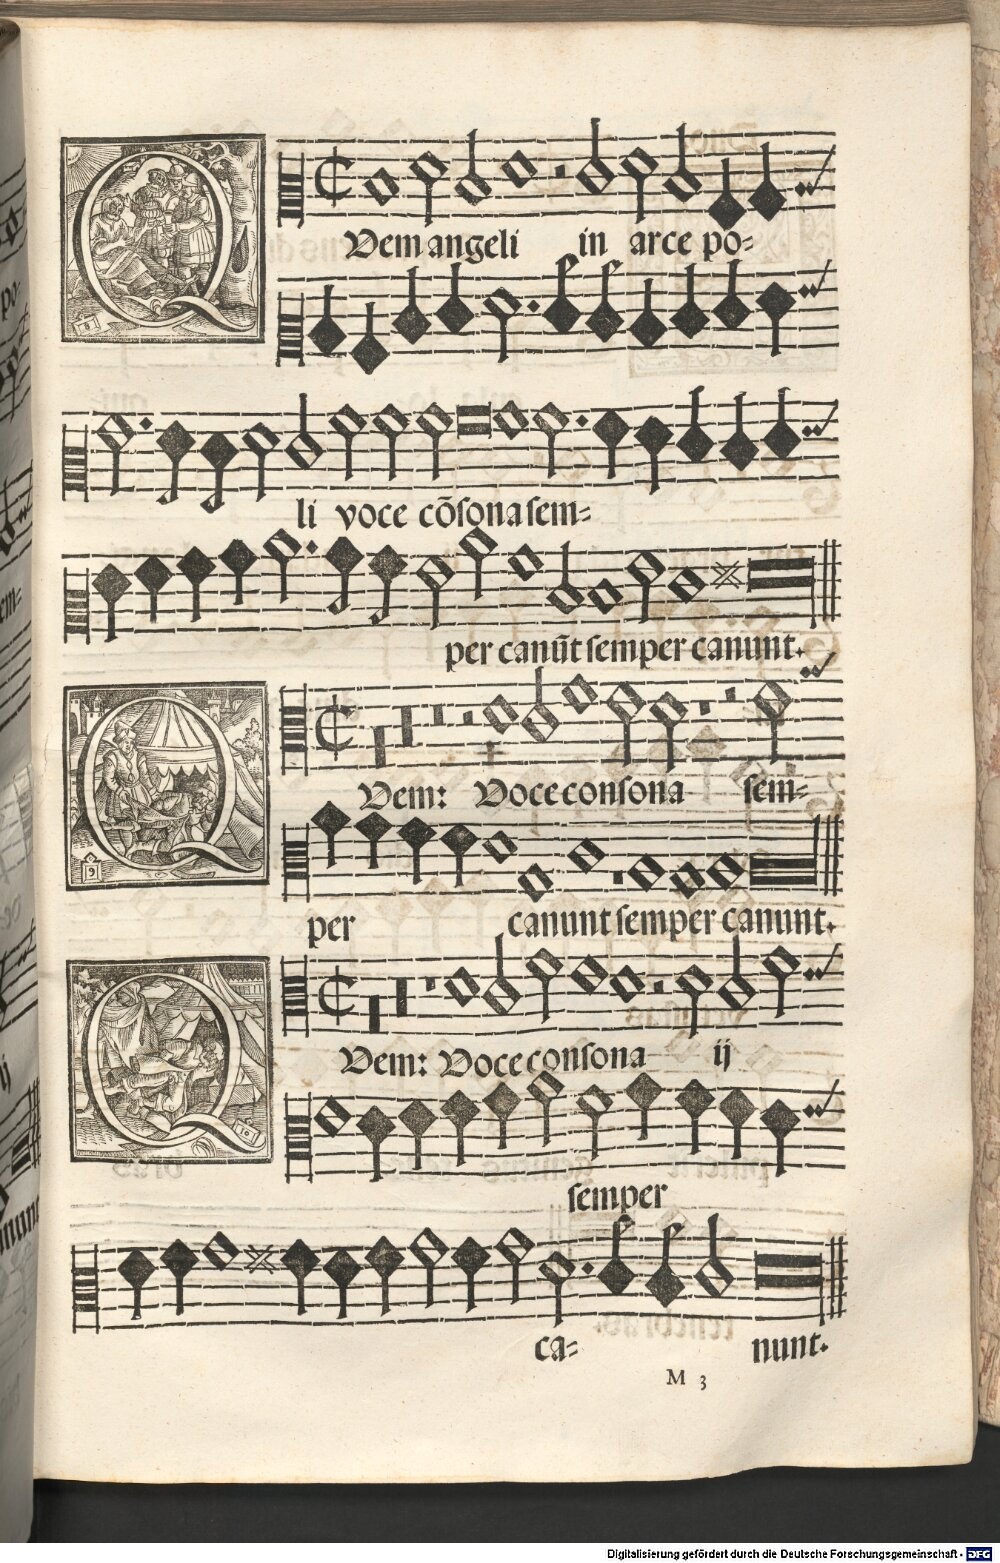 QUem angeli in arce po-
li voce cõsona sem-
per canũt semper canunt.
QUem: Voce consona sem-
per canunt semper canunt.
QUem: Voce consona ij
semper
ca- nunt.
M 3
Digitalisierung gefördert durch die Deutsche Forschungsgemeinschaft - DFG